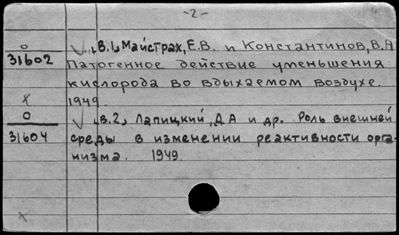 -2-
О В.1, Майстрах, Е.В. и Константинов, В.А
31602 Патогенное действие уменьшения
кислорода во вдыхаемом воздухе.
х 1949.
О В.2, Лапицкий, Д.А и др. Роль внешней
31604 среды в изменении реактивности орга-
низма. 1949.
х